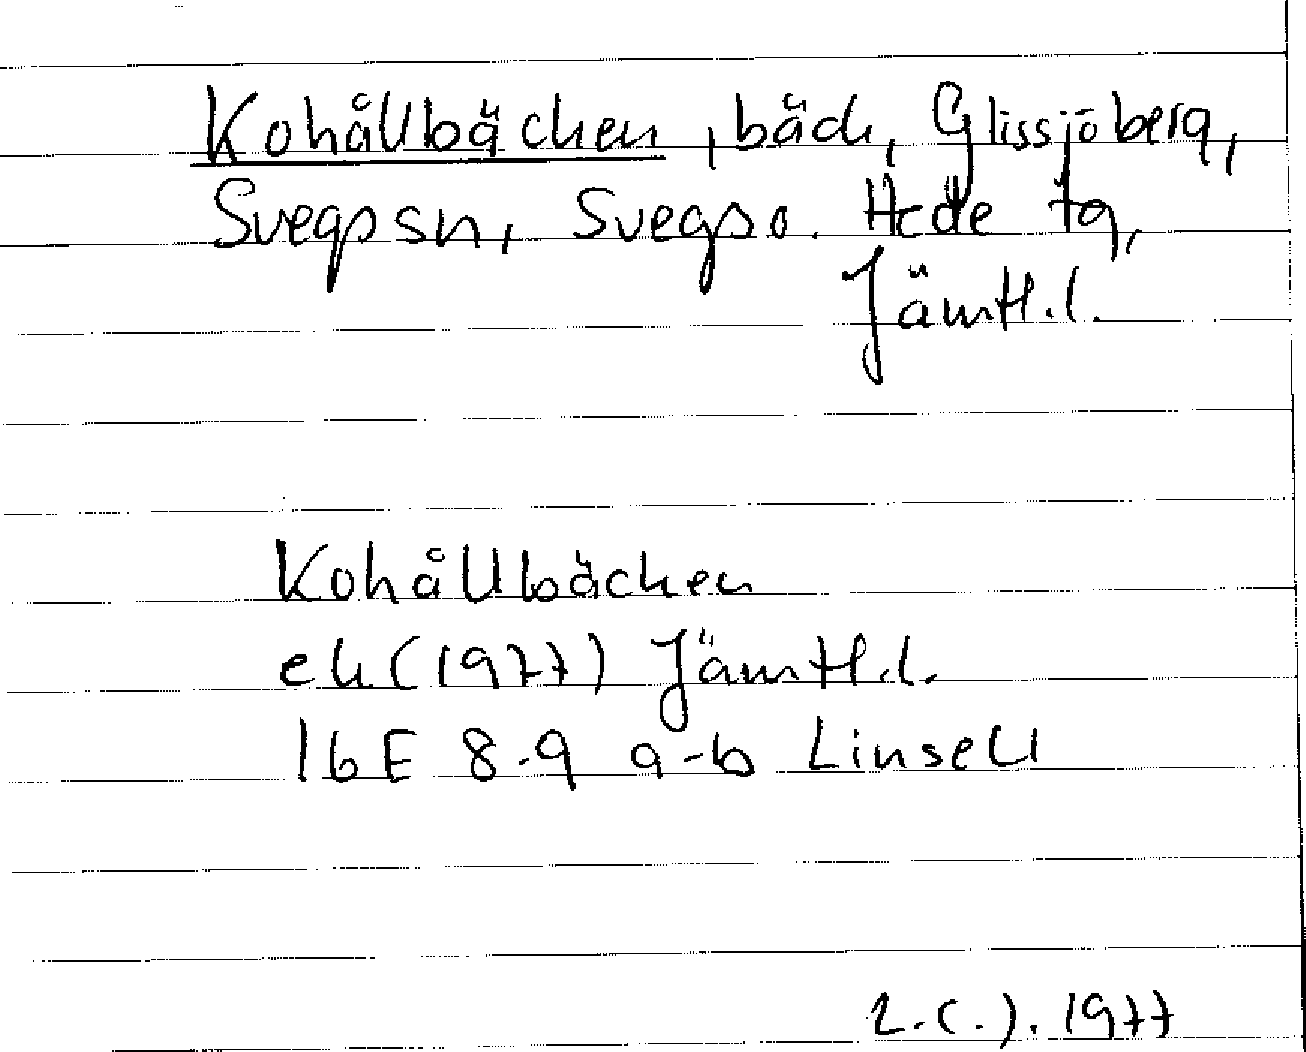 Kohållbäcken, bäck, Glissjöberg,
Svegs sn, Svegs o. Hede tg,
Jämtl.l.
Kohållbäcken
ek (1977) Jämtl.l.
16E 8-9 a-b Linsell
1977